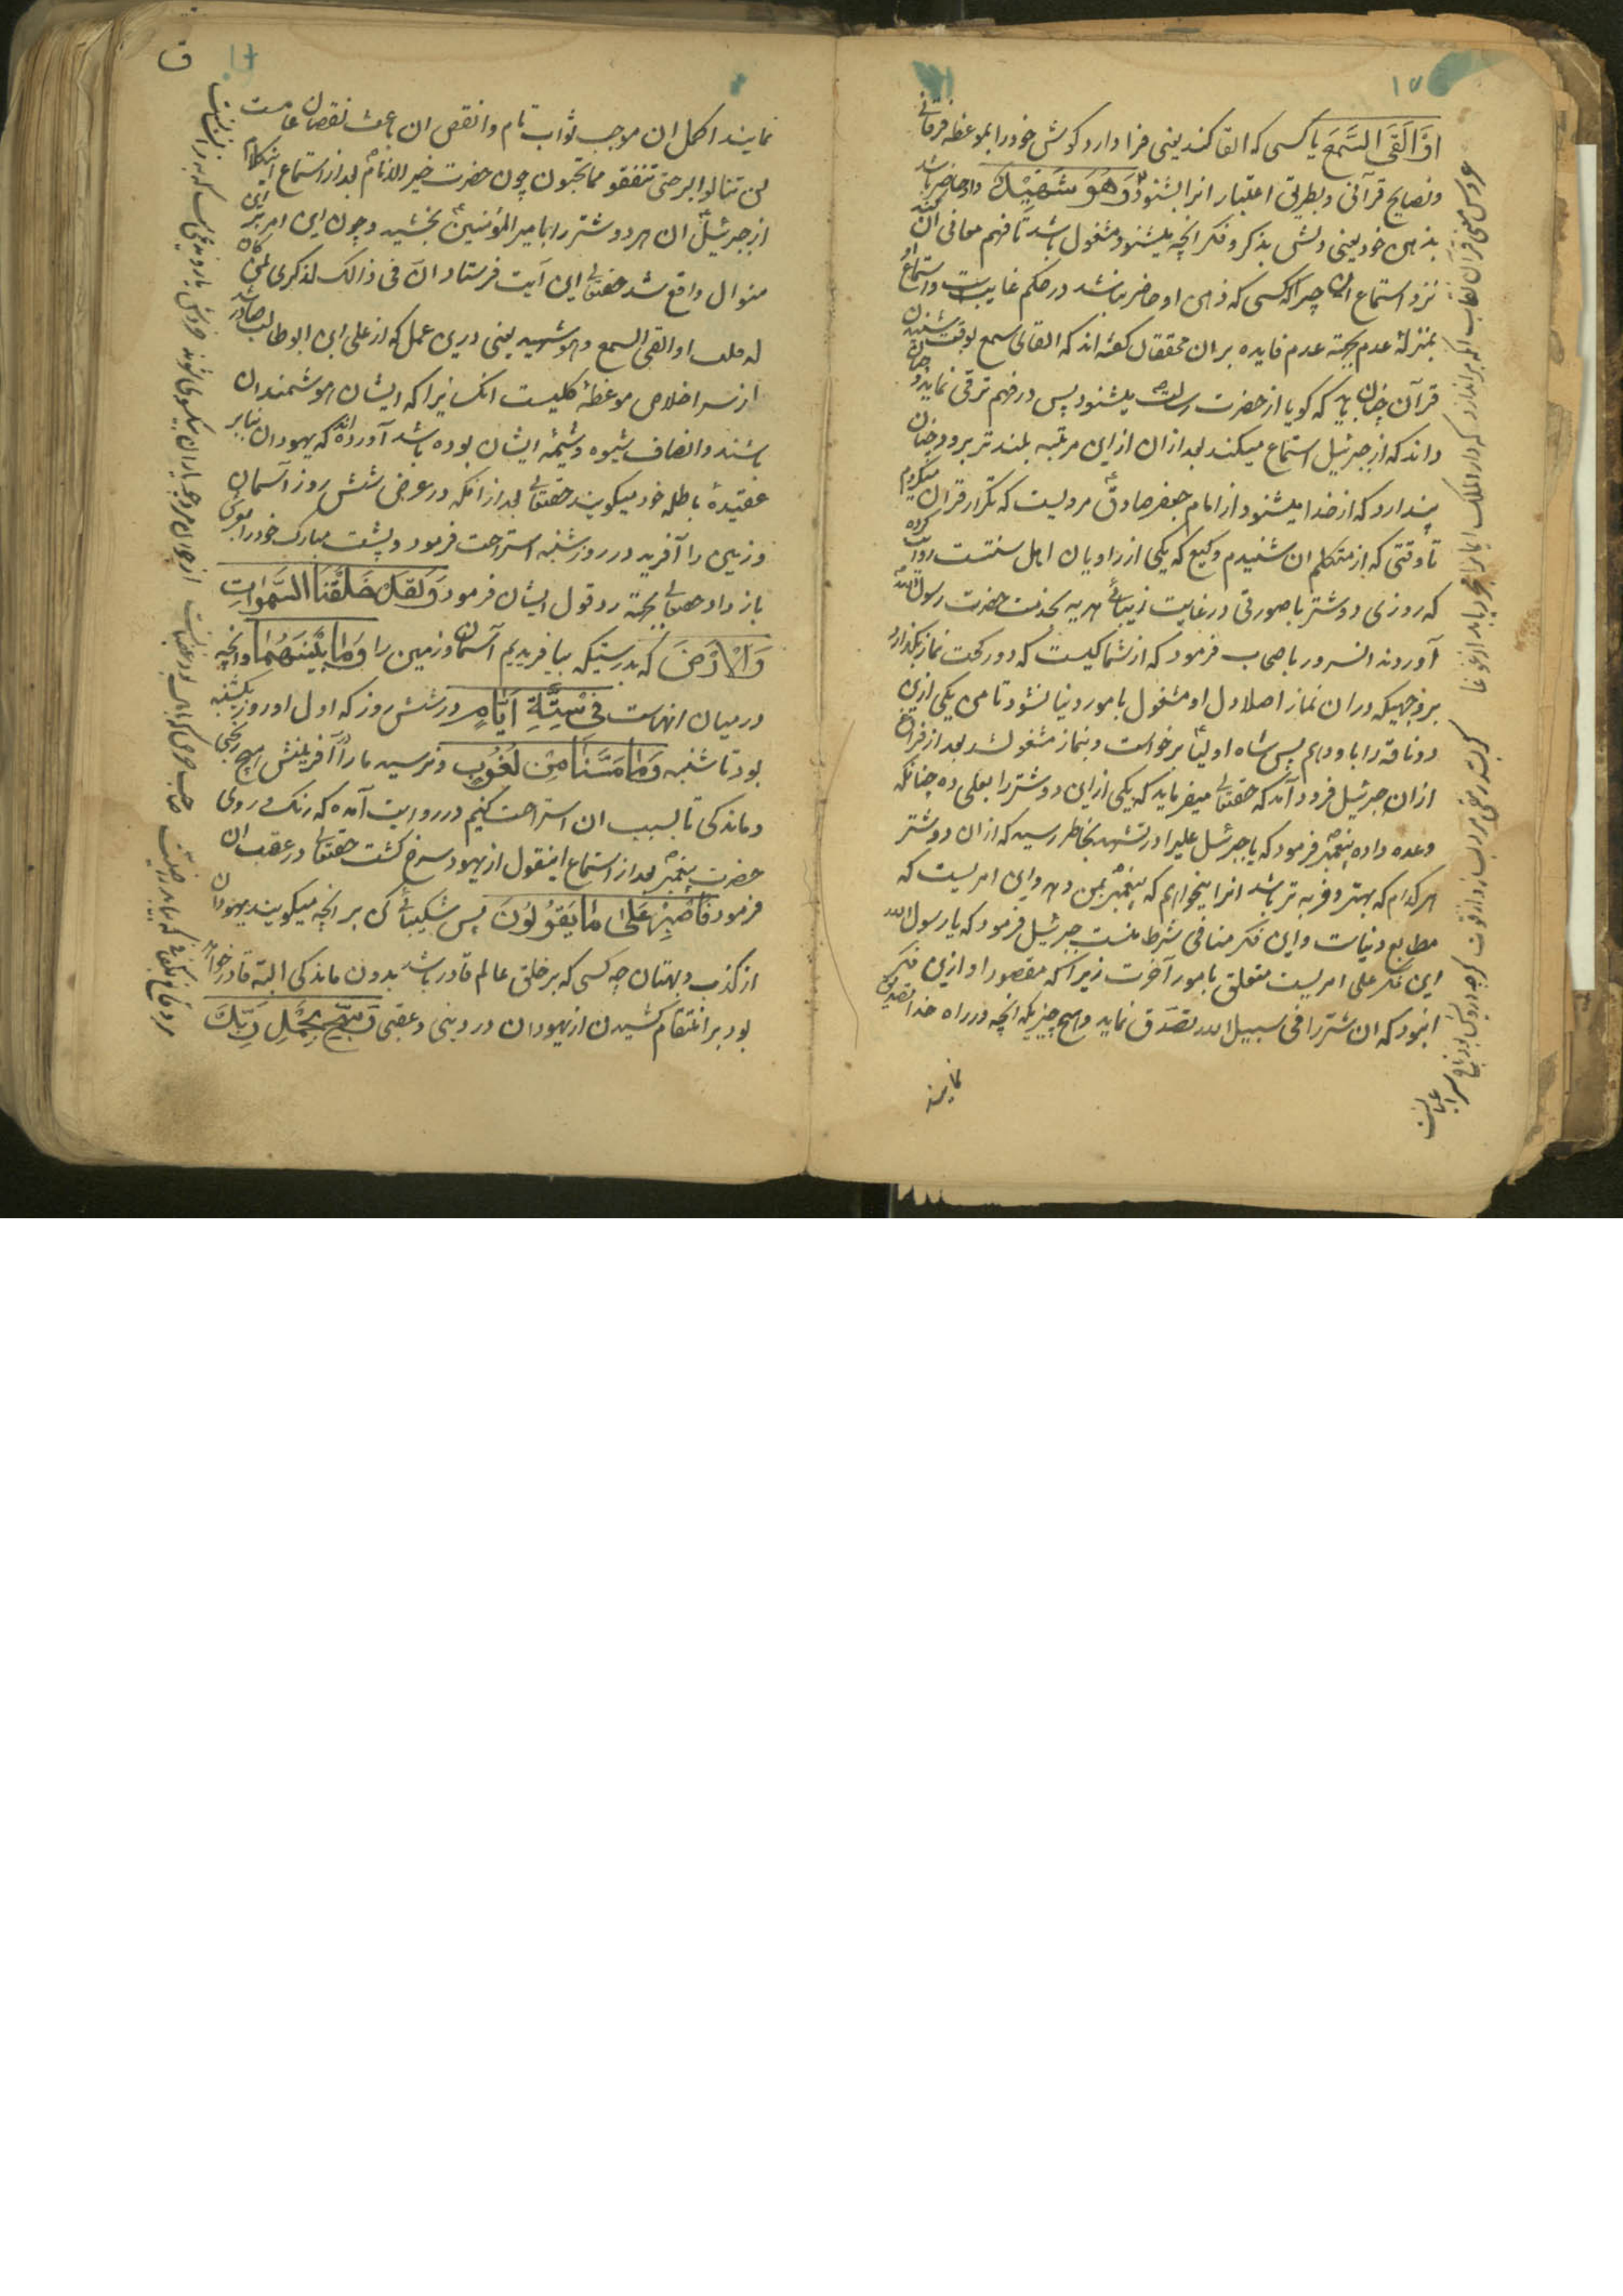 ۱۵
اَوْ اَلْقَی السَّمعَ یا کسی که القا کند یعنی فرا دارد کوش خود را بموعظه فرقانی
و نصایح قرآنی و بطریق اعتبار انرا بشنود وَ هُوَ شَهیدٌ و او حاضر باشد
بذهن خود یعنی دلش بذکر و فکر انچه میشنود مشغول باشد تا فهم معانی ان کند
نزد استماع ان چرا که کسی که ذهن او حاضر نباشد در حکم غایبست و استماع او
بمنزلهٔ عدم بجهته عدم فایده بران محققان کفته اند که القای سمع بوقت شنیدن
قرآن چنان باید که کویا از حضرت رسالت میشنود پس در فهم ترقی نماید و چنان
داند که از جبرئیل استماع میکند بعد ازان ازین مرتبه بلندتر برود و چنان
پندارد که از خدا میشنود از امام جعفر صادق مرویست که تکرار قران میکردم
تا وقتی که از متکلم ان شنیدم وکیع که یکی از راویان اهل سنتست روایت کرده
که روزی دو شتر با صورتی در غایت زیبائی هدیه بخدمت حضرت رسول الله
آوردند انسرور باصحاب فرمود که از شما کیست که دو رکعت نماز بکذارد
بر وجهیکه دران نماز اصلا دل او مشغول بامور دنیا نشود تا من یکی ازین
دو ناقه را باو دهم پس شاه اولیا برخواست و بنماز مشغول شد بعد از فراغ
ازان جبرئیل فرود آمد که حقتعالی میفرماید که یکی ازاین دو شتر را بعلی ده چنانکه
وعده داده پیغمبر فرمود که یا جبرئیل علی را در تشهد بخاطر رسید که ازان دو شتر
هر کدام که بهتر و فربه تر باشد انرا میخواهم که پیغمبر بمن دهد و این امریست که
مطابع دنیاست و این فکر منافی شرط منست جبرئیل فرمود که یا رسول الله
این فکر علی امریست متعلق بامور آخرت زیرا که مقصود او ازین فکر
انبود که ان شتر را فی سبیل الله تصدق نماید و هیچ چیز یکه انچه در راه خدا تصدیق
نمایند
ق
نمایند اکمل ان موجب ثواب تام و انقص ان باعث نقصان عامست
لن تنالوا البر حتی تنفقو مما تحبون چون حضرت خیر الانام بعد از استماع اینکلام
از جبرئیل ان هر دو شتر را بامیر المؤمنین بخشید و چون این امر بر این
منوال واقع شد حقتعالی این آیت فرستاد ان فی ذالک لذکری لمن کان
له قلب او القی السمع و هو شهید یعنی درین عمل که از علی ابن ابو طالب صادر شد
از سر اخلاص موعظهٔ کلیست انکسانیرا که ایشان هوشمندان
باشند و انصاف شیوه و شیمهٔ ایشان بوده باشد آورده اند که یهودان بنابر
عقیدهٔ باطله خود میکویند حقتعالی بعد از انکه در عرض شش روز آسمان
و زمین را آفرید در روز شنبه استراحت فرمود و پشت مبارک خود را بر عرش
باز داد حقتعالی بجهة رد قول ایشان فرمود وَ لَقَدْ خَلَقْنَا السَّمٰوَاتِ
وَ الْاَرْضَ که بدرستیکه بیافریدیم آسمان و زمین را وَ مٰا بَیْنَهُمٰا و انچه
در میان انهاست فی سِتَّةِ اَیّٰامٍ در شش روز که اول او روز یکشنبه
بود تا شنبه وَ مٰا مَسَّنٰا مِنْ لُغُوبٍ و نرسید ما را از آفرینش هیچ رنجی
و ماندکی تا بسبب ان استراحت کنیم در روایت آمده که رنک روی
حضرت پیغمبر بعد از استماع اینقول از یهود سرخ کشت حقتعالی در عقب ان
فرمود فَاصْبِرْ عَلیٰ مٰا یَقُولُونَ پس شکیبائی کن بر انچه میکویند یهودان
از کذب و بهتان چه کسی که بر خلق عالم قادر باشد بدون ماندکی البته قادر خواهد
بود بر انتقام کشیدن از یهودان در دینی و عقبی وَ سَبِّحْ بِحَمْدِ رَبِّکَ